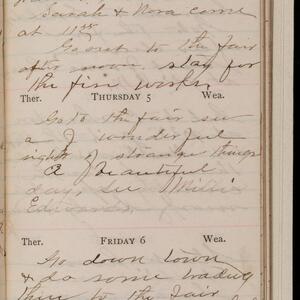 Sarah & Nora come
at 11 35
Go out to the fair
after noon. stay for
the fire works.
Ther. THURSDAY 5 Wea.
Go to the fair see
a wonderful
sight of strange things
A Beautiful
day, see Millie
Edwards.
Ther. FRIDAY 6 Wea.
Go down town
& do some trading
then to the Fair